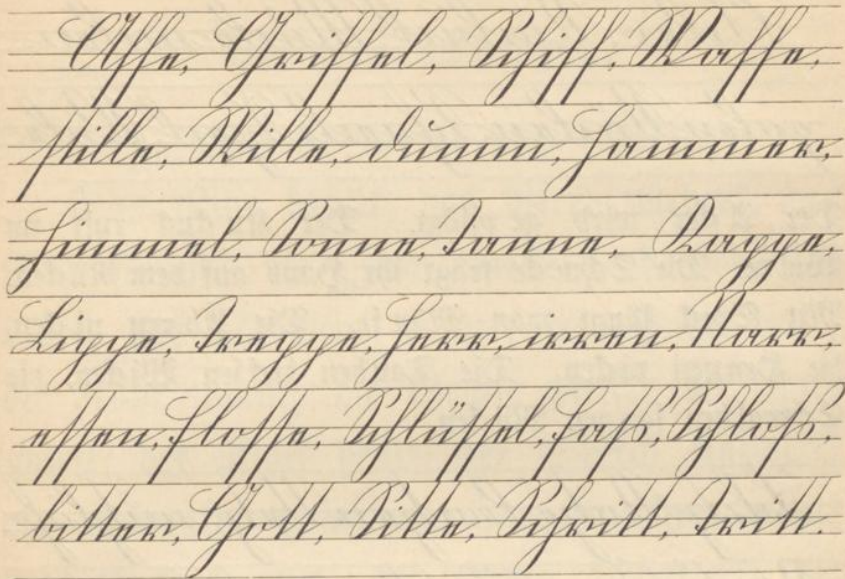 Affe, Griffel, Schiff, Waffe,
stille, Wille, dumm, Hammer,
Himmel, Sonne, Tanne, Kappe,
Lippe, Treppe, Herr, irren, Narr,
essen, Flosse, Schlüssel, Faß, Schloß,
bitter, Gott, Sitte, Schritt, Tritt.